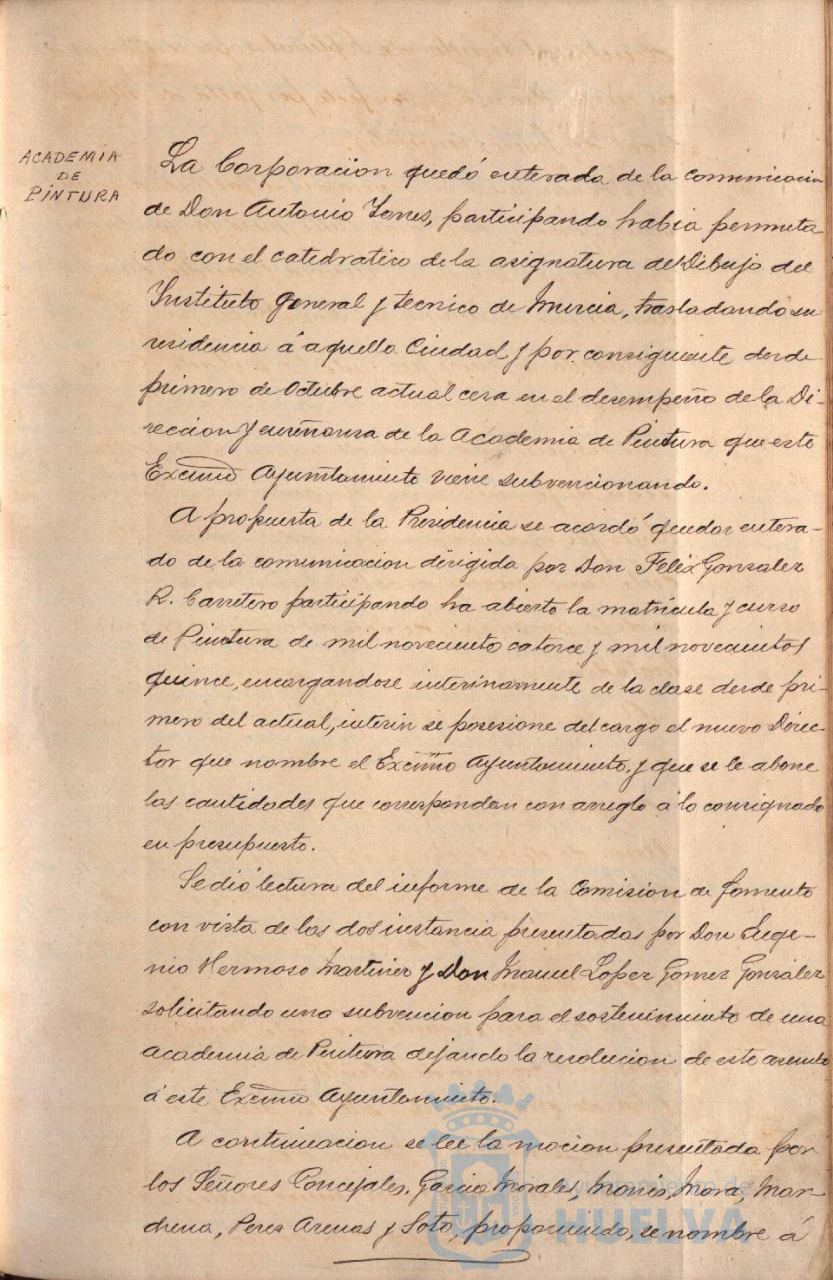 ACADEMIA
DE
PINTURA
La Corporacion quedó enterada de la comunicacion
de Don Antonio Torres, participando habia permuta-
do con el catedratico de la asignatura del Dibujo del
Instituto general y tecnico de Murcia, trasladando su
residencia á aquella Ciudad y por consiguiente desde
primero de Octubre actual cesa en el desempeño de la Di-
reccion y enseñanza de la Academia de Pintura que este
Excmo Ayuntamiento viene subvencionando.
A propuesta de la Presidencia se acordó quedar entera-
do de la comunicacion dirigida por Don Felix Gonzalez
R. Carretero participando ha abierto la matricula y curso
de Pintura de mil novecientos catorce y mil novecientos
quince, encargandose interinamente de la clase desde pri-
mero del actual, interin se posesione del cargo el nuevo Direc-
tor que nombre el Excmo Ayuntamiento, y que se le abone
las cantidades que correspondan con arreglo á lo consignado
en presupuesto.
Se dió lectura del informe de la Comision de fomento
con vista de las dos instancia presentadas por Don Euge-
nio Hermoso Martinez y Don Manuel Lopez Gomez González
solicitando una subvencion para el sostenimiento de una
academia de Pintura dejando la resolucion de este asunto
á este Excmo Ayuntamiento.
A continuacion se lee la mocion presentada por
los Señores Concejales, Garcia Morales, Mora, Mar-
chena, Perez Arenas y Soto, proponiendo, se nombre á
Ayuntamiento de
HUELVA